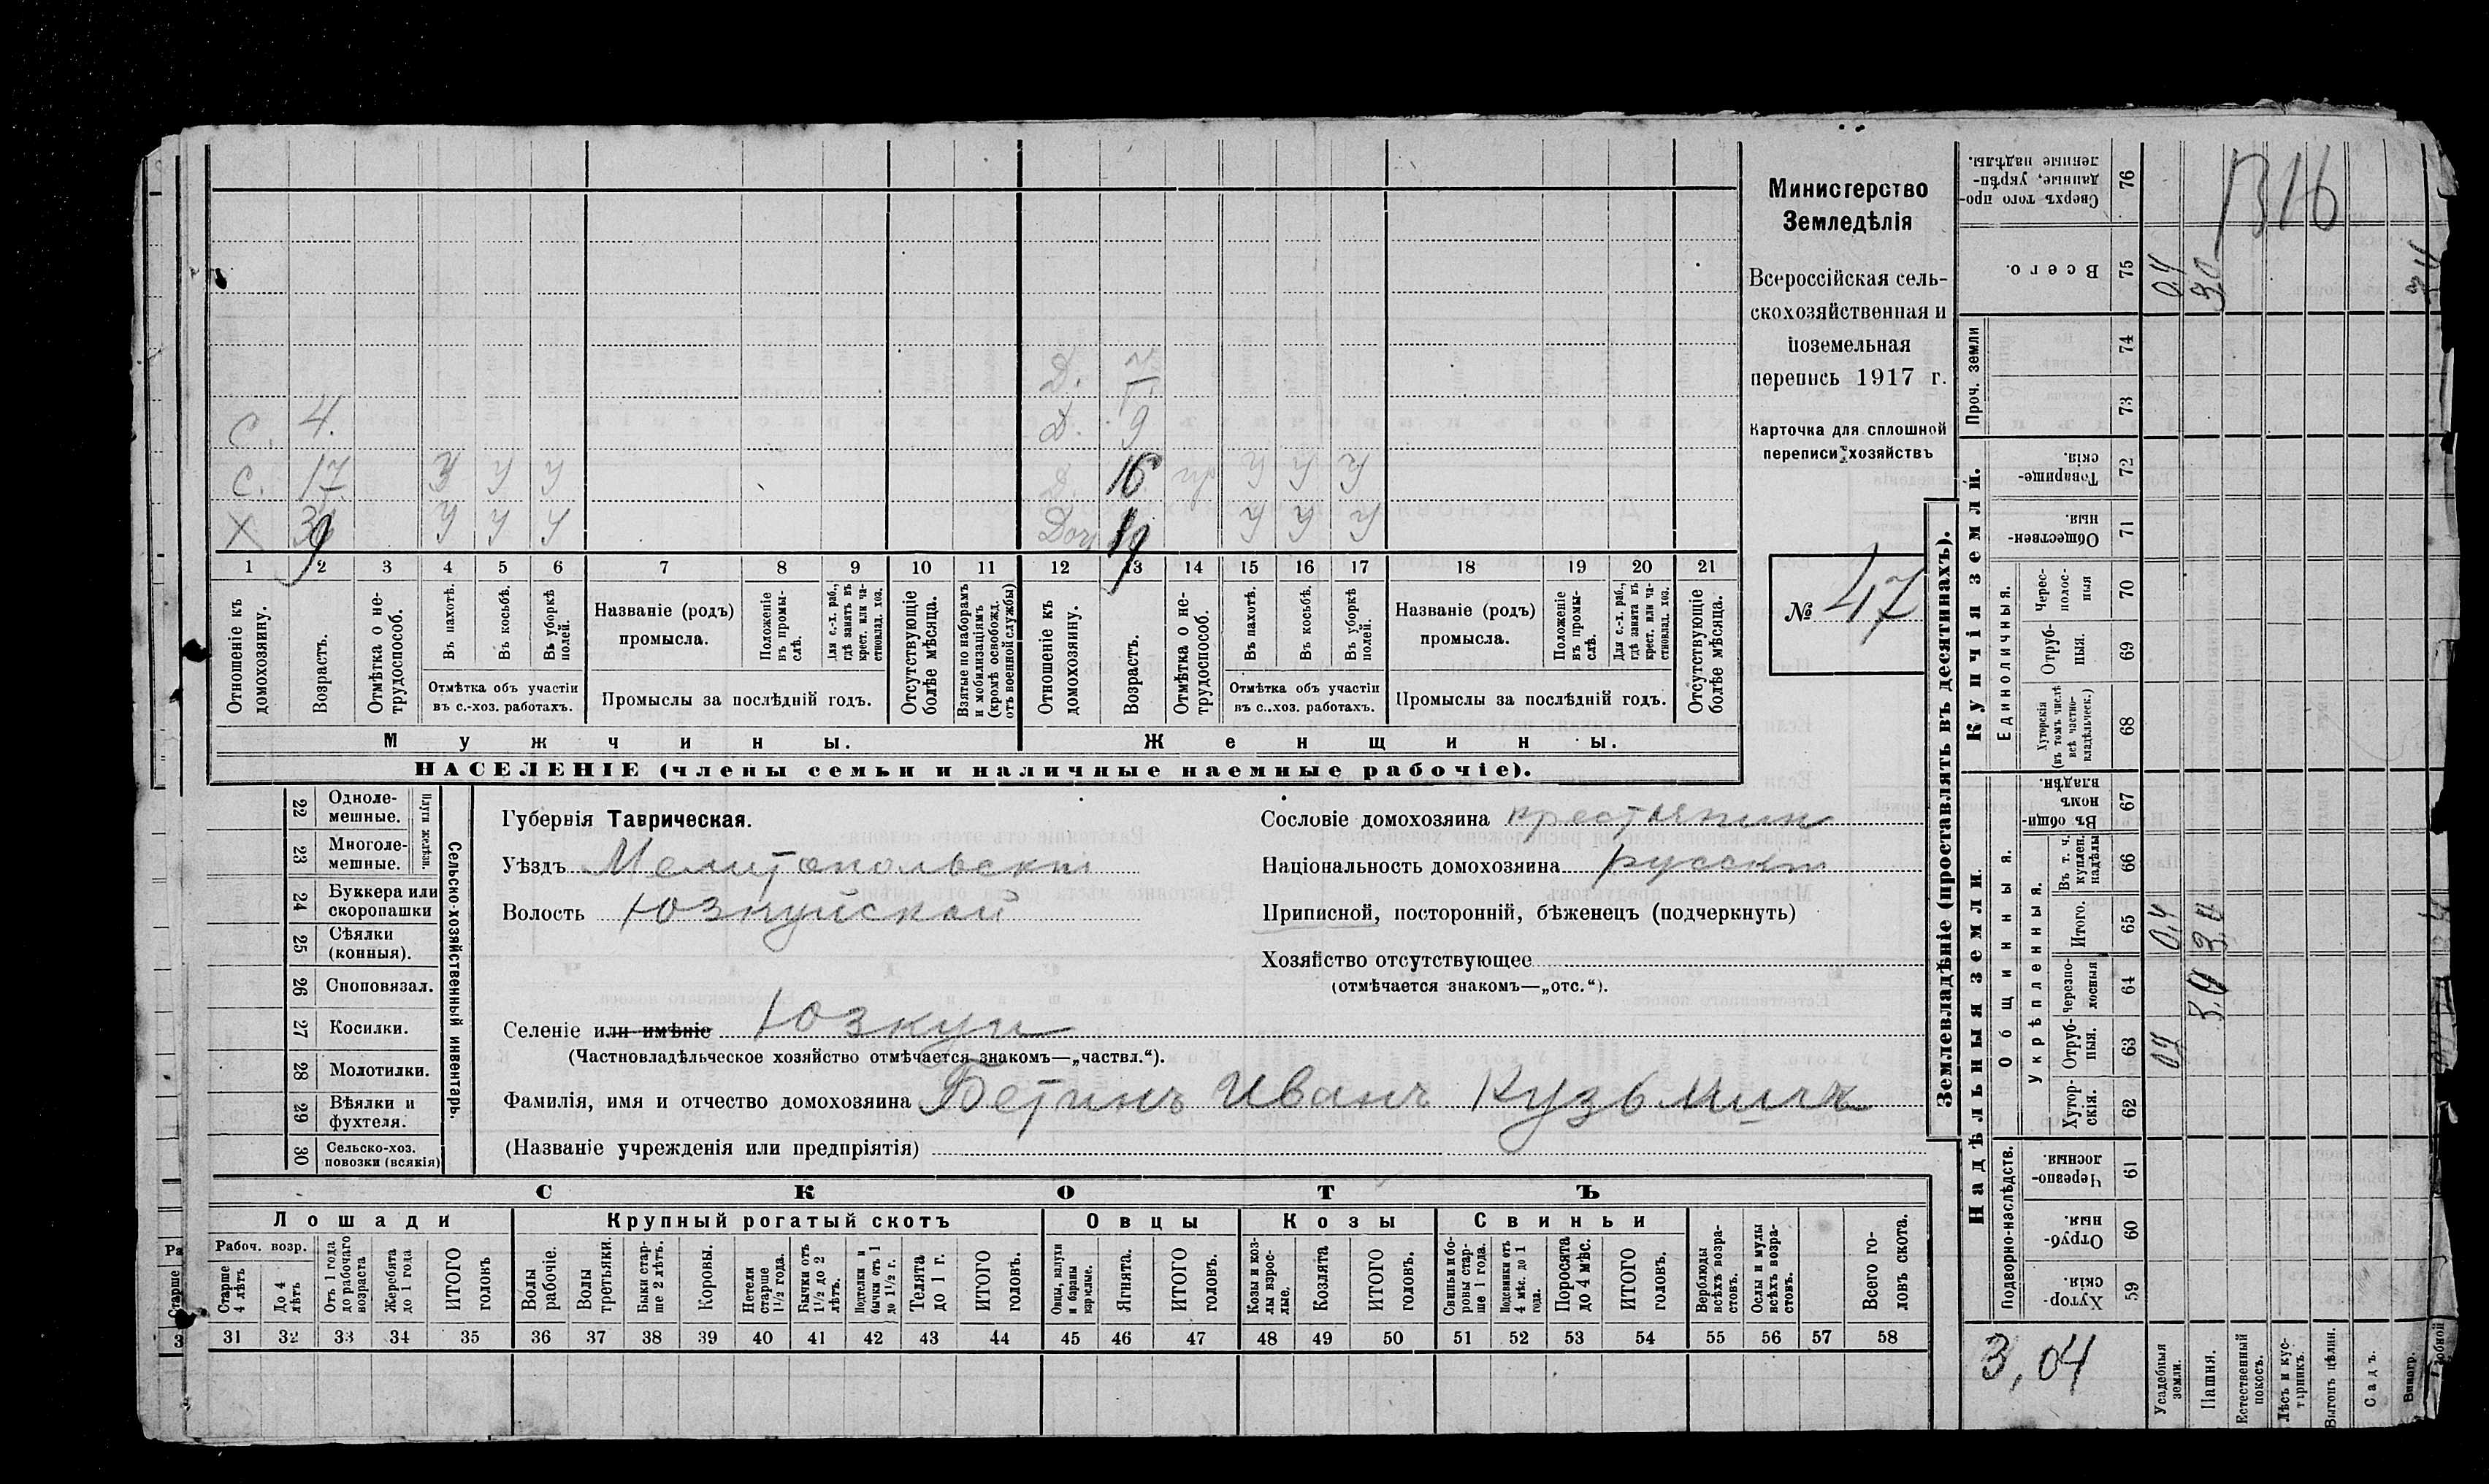 Министерство
Земледѣлія
Всероссійская сель-
скохозяйственная и
поземельная
перепись 1917 г.
Карточка для сплошной
переписи хозяйствъ
№ 47
1316
Д.
С. 4. Д. 9
С. 17 У У У Д. 16 У У У
Х У У У У У У
1 2 3 4 5 6 7 8 9 10 11 12 13 14 15 16 17 18 19 20 21
Отношеніе къ домохозяину.
Возрастъ.
Отмѣтка о не-трудоспособ.
Въ пахотѣ.
Въ косьбѣ.
Въ уборкѣ полей.
Отмѣтка объ участіи въ с.-хоз. работахъ.
Названіе (родъ) промысла.
Положеніе въ промы-слѣ.
Для с.-х. раб., гдѣ занятъ въ крест. или ча-стновлад. хоз.
Промыслы за послѣдній годъ.
Отсутствующіе болѣе мѣсяца.
Взятые по наборамъ и мобилизаціямъ (кромѣ освобожд. отъ военной службы)
Отношеніе къ домохозяину.
Возрастъ.
Отмѣтка о не-трудоспособ.
Въ пахотѣ.
Въ косьбѣ.
Въ уборкѣ полей.
Отмѣтка объ участіи въ с.-хоз. работахъ.
Названіе (родъ) промысла.
Положеніе въ промы-слѣ.
Для с.-х. раб., гдѣ занята въ крест. или ча-стновлад. хоз.
Промыслы за послѣдній годъ.
Отсутствующіе болѣе мѣсяца.
Мужчины. Женщины.
НАСЕЛЕНІЕ (члены семьи и наличные наемные рабочіе).
22 Одноле-мешные.
23 Многоле-мешные.
24 Буккера или скоропашки
25 Сѣялки (конныя).
26 Сноповязал.
27 Косилки.
28 Молотилки.
29 Вѣялки и фухтеля.
30 Сельско-хоз. повозки (всякія)
Сельско-хозяйственный инвентарь.
Губернія Таврическая.
Уѣздъ Мелитопольскій
Волость Юзкуйской
Сословіе домохозяина крестьянин
Національность домохозяина русскій
Приписной, посторонній, бѣженецъ (подчеркнуть)
Хозяйство отсутствующее
(отмѣчается знакомъ—„отс.“).
Селеніе или имѣніе Юзкуи
(Частновладѣльческое хозяйство отмѣчается знакомъ—„частвл.“).
Фамилія, имя и отчество домохозяина Бетинъ Иванъ Кузьмичъ
(Названіе учрежденія или предпріятія)
СКОТЪ
Лошади Крупный рогатый скотъ Овцы Козы Свиньи
Рабоч. возр.
Старше 4 лѣтъ
До 4 лѣтъ
Отъ 1 года до рабочаго возраста
Жеребята до 1 года
ИТОГО головъ
Волы рабочіе.
Волы третьяки.
Быки стар-ше 2 лѣтъ.
Коровы.
Нетели старше 1½ года.
Бычки отъ 1½ до 2 лѣтъ.
Подтелки и бычки отъ 1 до 1½ г.
Телята до 1 г.
ИТОГО головъ.
Овцы, валухи и бараны взрослые.
Ягнята.
ИТОГО головъ.
Козы и коз-лы взрос-лые.
Козлята
ИТОГО головъ.
Свиньи и бо-ровы стар-ше 1 года.
Подсвинки отъ 4 мѣс. до 1 года.
Поросята до 4 мѣс.
ИТОГО головъ.
Верблюды всѣхъ возра-стовъ.
Ослы и мулы всѣхъ возра-стовъ.
Всего го-ловъ скота.
31 32 33 34 35 36 37 38 39 40 41 42 43 44 45 46 47 48 49 50 51 52 53 54 55 56 57 58
Землевладѣніе (проставлять въ десятинахъ).
Надѣльныя земли. Купчія земли. Проч. земли
Подворно-наслѣдств.
Общинныя.
Укрѣпленныя.
Единоличныя.
59 Хутор-скія.
60 Отруб-ныя.
61 Черезпо-лосныя.
62 Хутор-скія.
63 Отруб-ныя.
64 Черезпо-лосныя
65 Итого.
66 Въ т. ч. куплен. надѣлы
67 Въ общи-номъ владѣн.
68 Хуторскія (въ томъ числѣ всѣ частно-владѣльческ.)
69 Отруб-ныя.
70 Черес-полос-ныя
71 Обществен-ныя.
72 Товарище-скія.
73
74
75 Всего.
76 Сверхъ того про-данные, укрѣп-ленные надѣлы.
3,04
Усадебныя земли. 04 0,4 04
Пашня. 3,0 3,0 3,0
Естественный покосъ.
Лѣсъ и кус-тарникъ.
Выгонъ цѣлин.
Садъ.
Виногр.